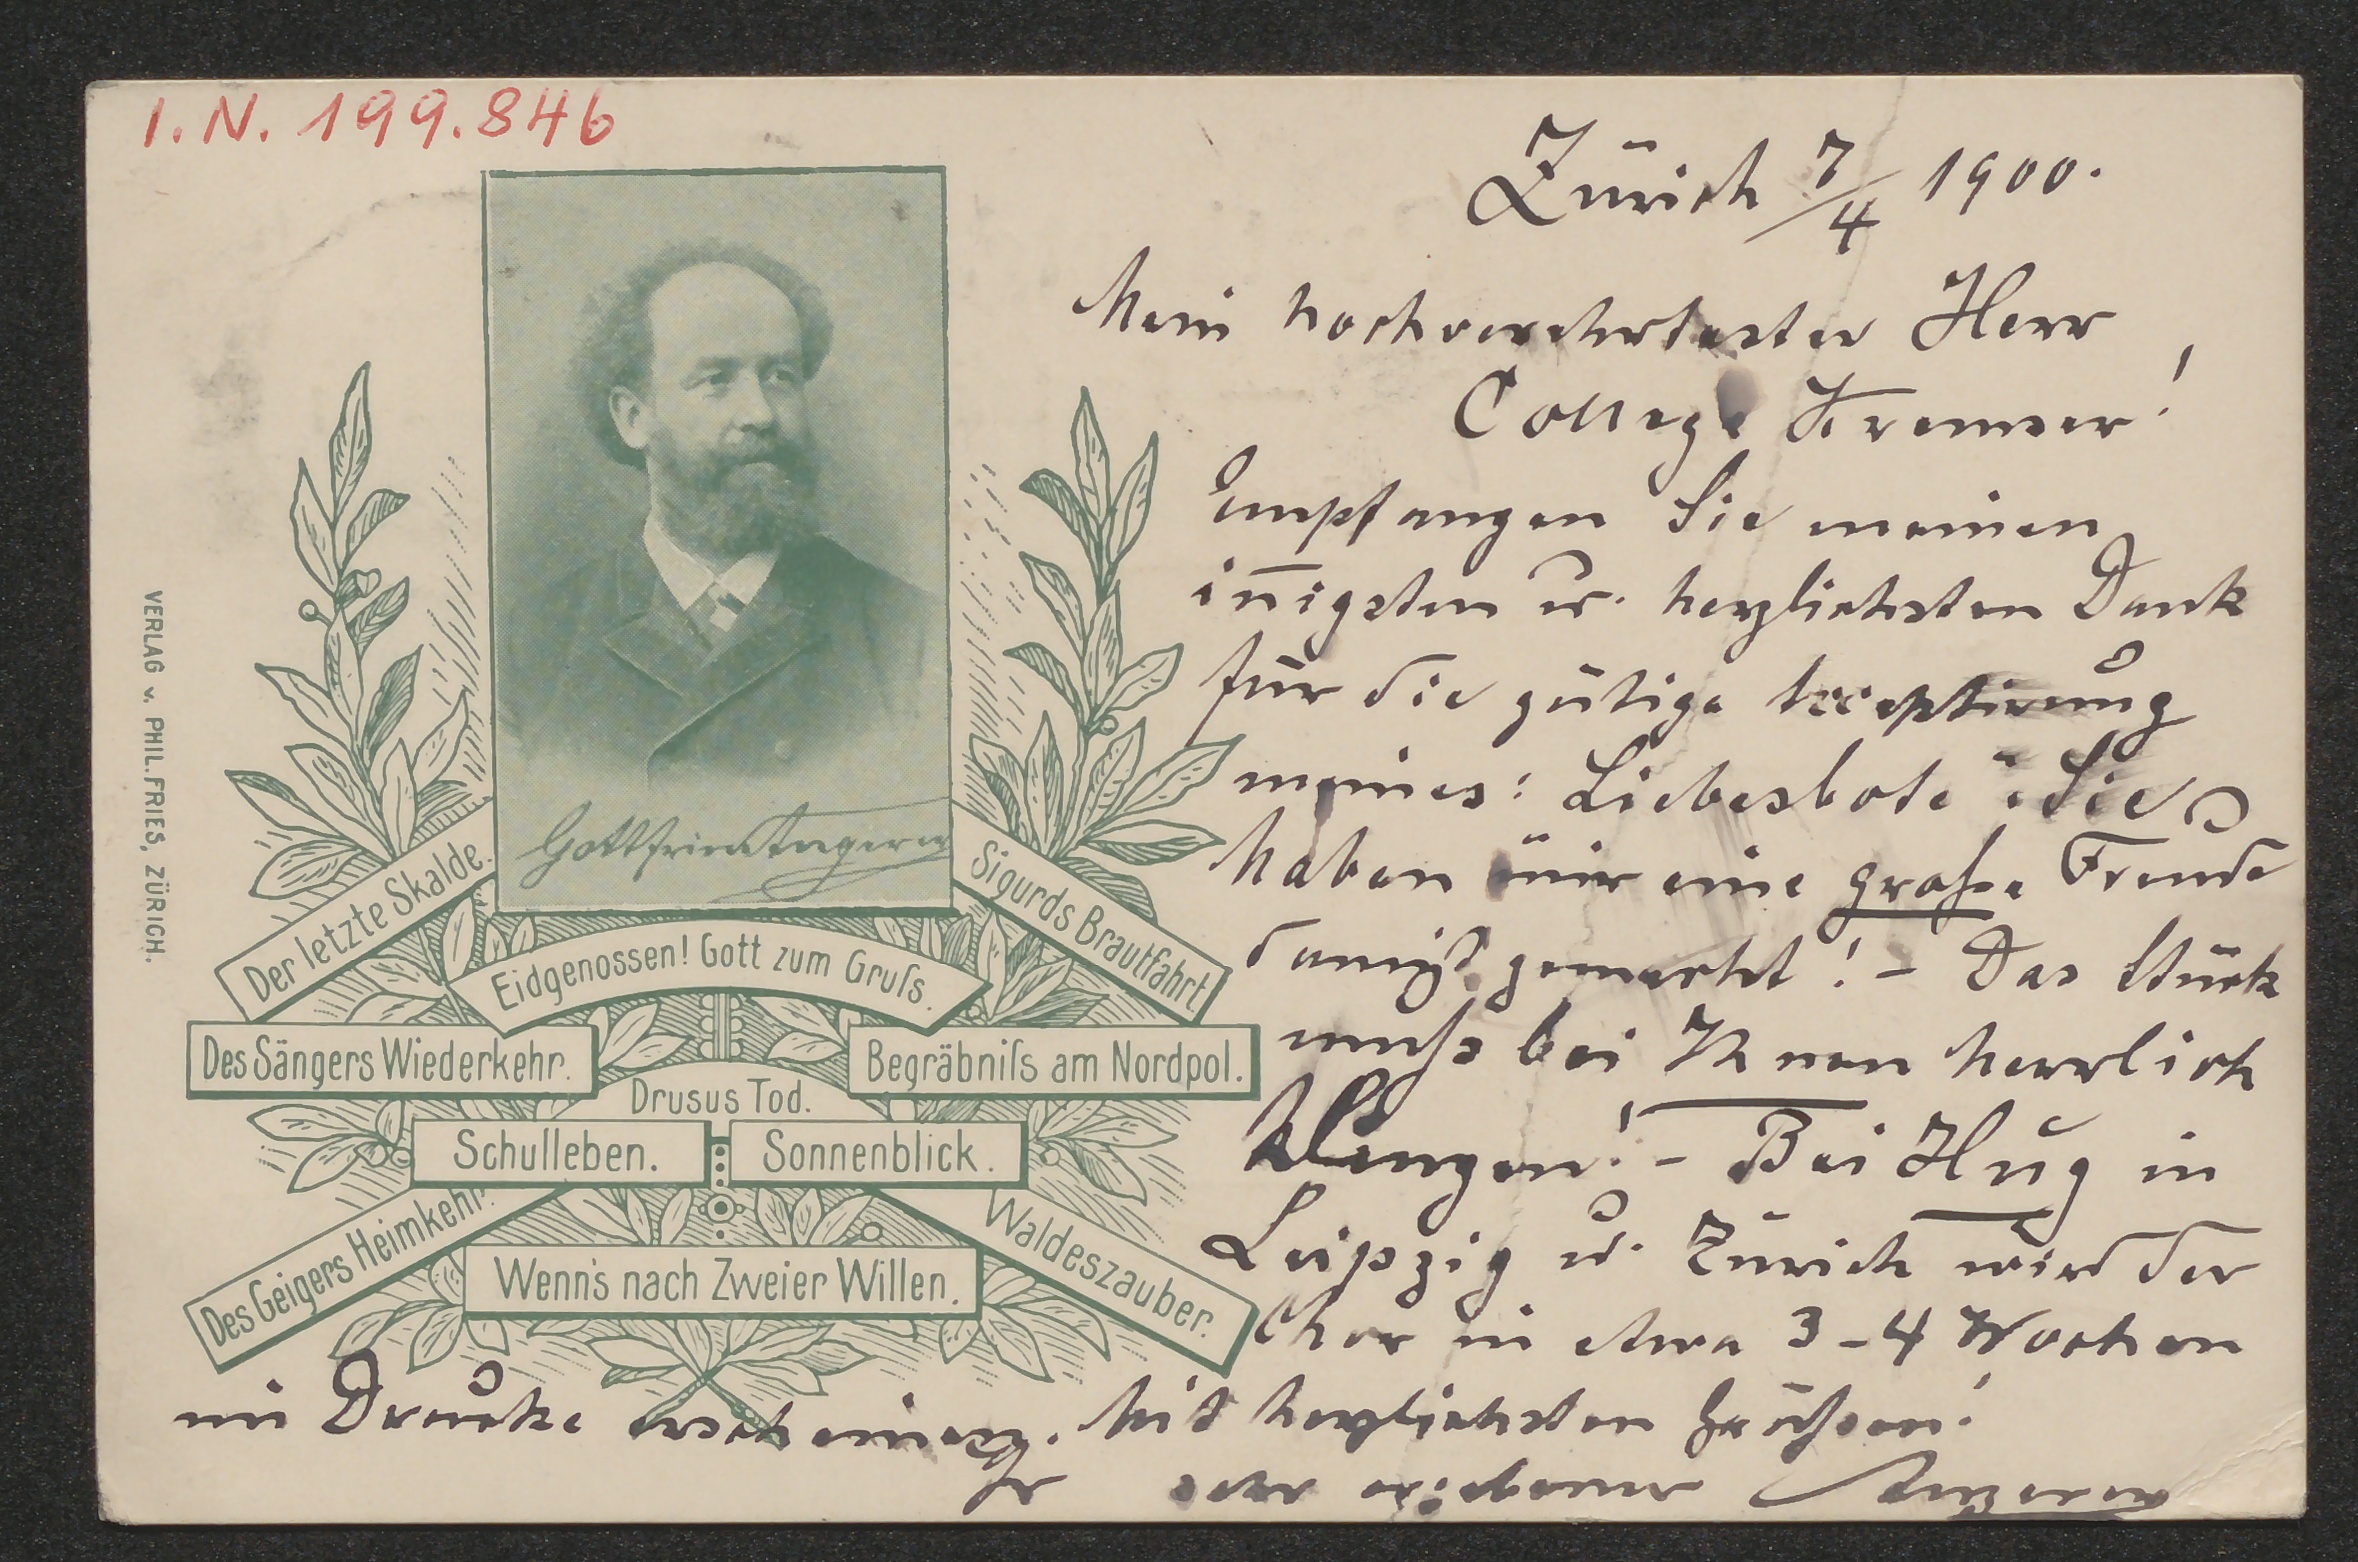 I.N. 199.846
Zürich 7/4 1900.
Mein hochverehrtester Herr
College Kremser!
Empfangen Sie meinen
in̄igsten u. herzlichsten Dank
für die gütige Acceptirung
meines: Liebesbote. Sie
haben mir eine große Freude
damit gemacht! – Das Stück
muß bei Ihnen herrlich
klingen! – Bei Hug in
Leipzig u. Zürich wird der
Chor in etwa 3–4 Wochen
im Drucke erscheinen. Mit herzlichsten Grüßen!
Ihr ergebener Angerer
Gottfried Angerer
Der letzte Skalde.
Sigurds Brautfahrt
Eidgenossen! Gott zum Gruſs.
Des Sängers Wiederkehr.
Begräbniſs am Nordpol.
Drusus Tod.
Schulleben.
Sonnenblick.
Des Geigers Heimkehr.
Waldeszauber.
Wenn's nach Zweier Willen.
VERLAG v. PHIL. FRIES, ZÜRICH.